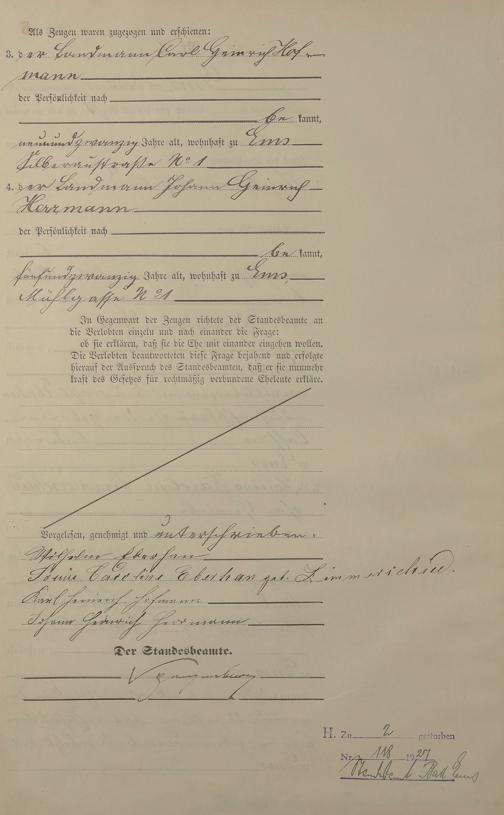 Als Zeugen waren zugezogen und erschienen:
3. der Landmann Carl Heinrich Hof-
mann
der Persönlichkeit nach
be kannt,
neunundzwanzig Jahre alt, wohnhaft zu Ems
Silberaustraße No 1
4. der Landmann Johann Heinrich
Herrmann
der Persönlichkeit nach
be kannt,
fünfundzwanzig Jahre alt, wohnhaft zu Ems
Mühlgasse No 1
In Gegenwart der Zeugen richtete der Standesbeamte an
die Verlobten einzeln und nach einander die Frage:
ob sie erklären, daß sie die Ehe mit einander eingehen wollen.
Die Verlobten beantworteten diese Frage bejahend und erfolgte
hierauf der Ausspruch des Standesbeamten, daß er sie nunmehr
kraft des Gesetzes für rechtmäßig verbundene Eheleute erkläre.
Vorgelesen, genehmigt und unterschrieben.
Wilhelm Eberhan
Caroline Eberhan geb.
Karl Heinrich Hofmann
Johann Heinrich Herrmann
Der Standesbeamte.
H. Zu 2 gestorben
Nr. 118 1927
Standesamt Bad Ems